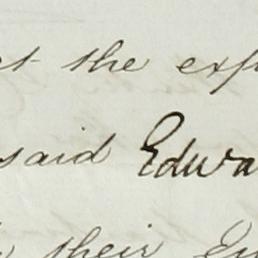 the exp
said Edwa
their